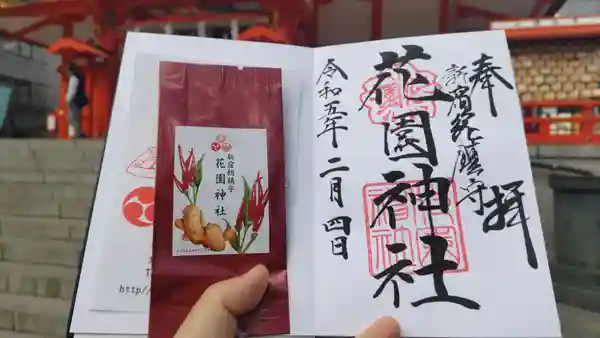 奉拝
新宿総鎮守
花園神社
令和五年二月四日
新宿総鎮守
花園神社
http:/